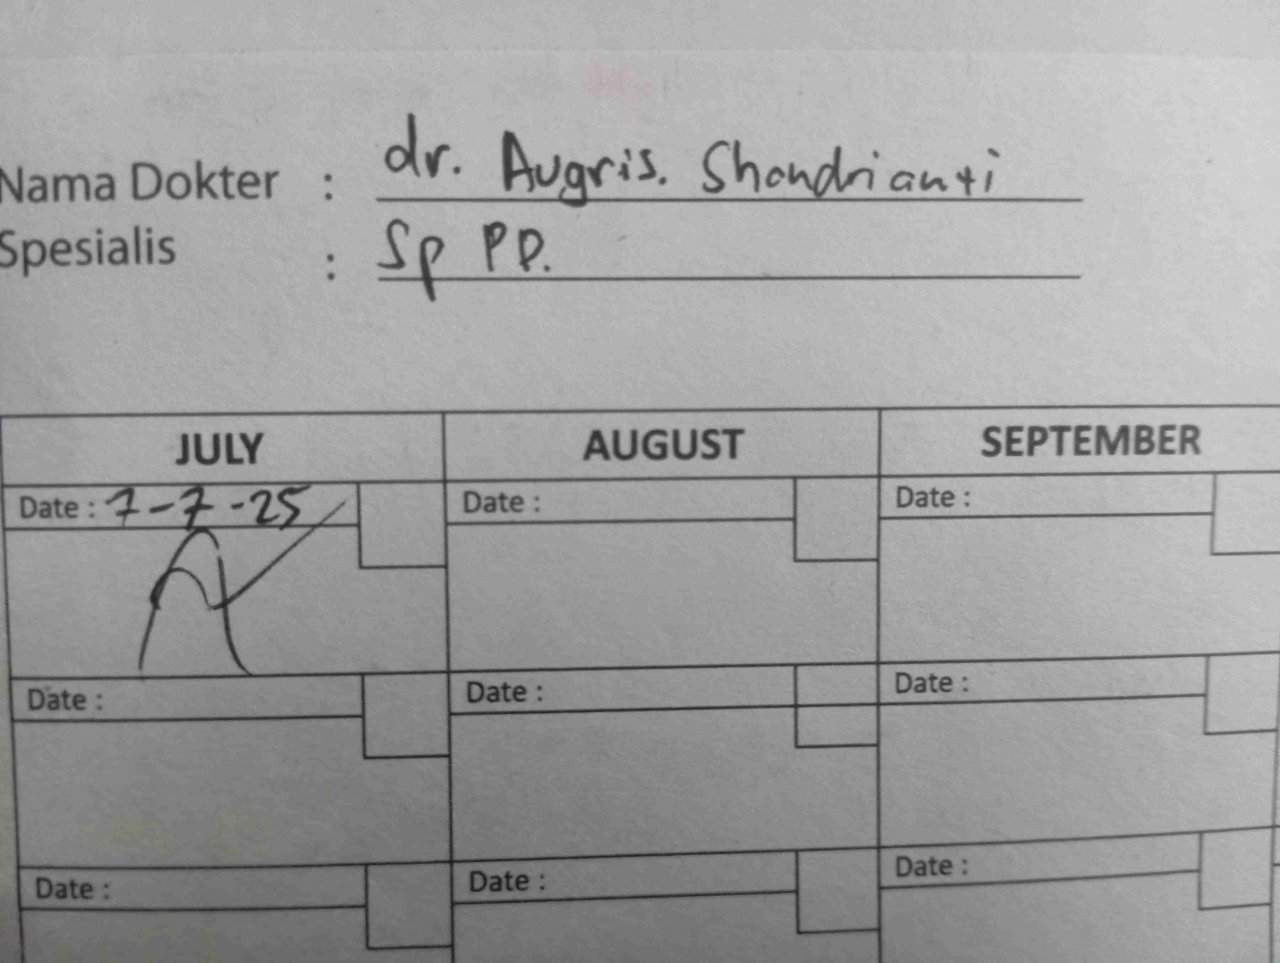 Nama Dokter : dr. Augris. Shandrianti
Spesialis : Sp PD.
JULY AUGUST SEPTEMBER
Date : 7-7-25 Date : Date :
Date : Date : Date :
Date : Date : Date :